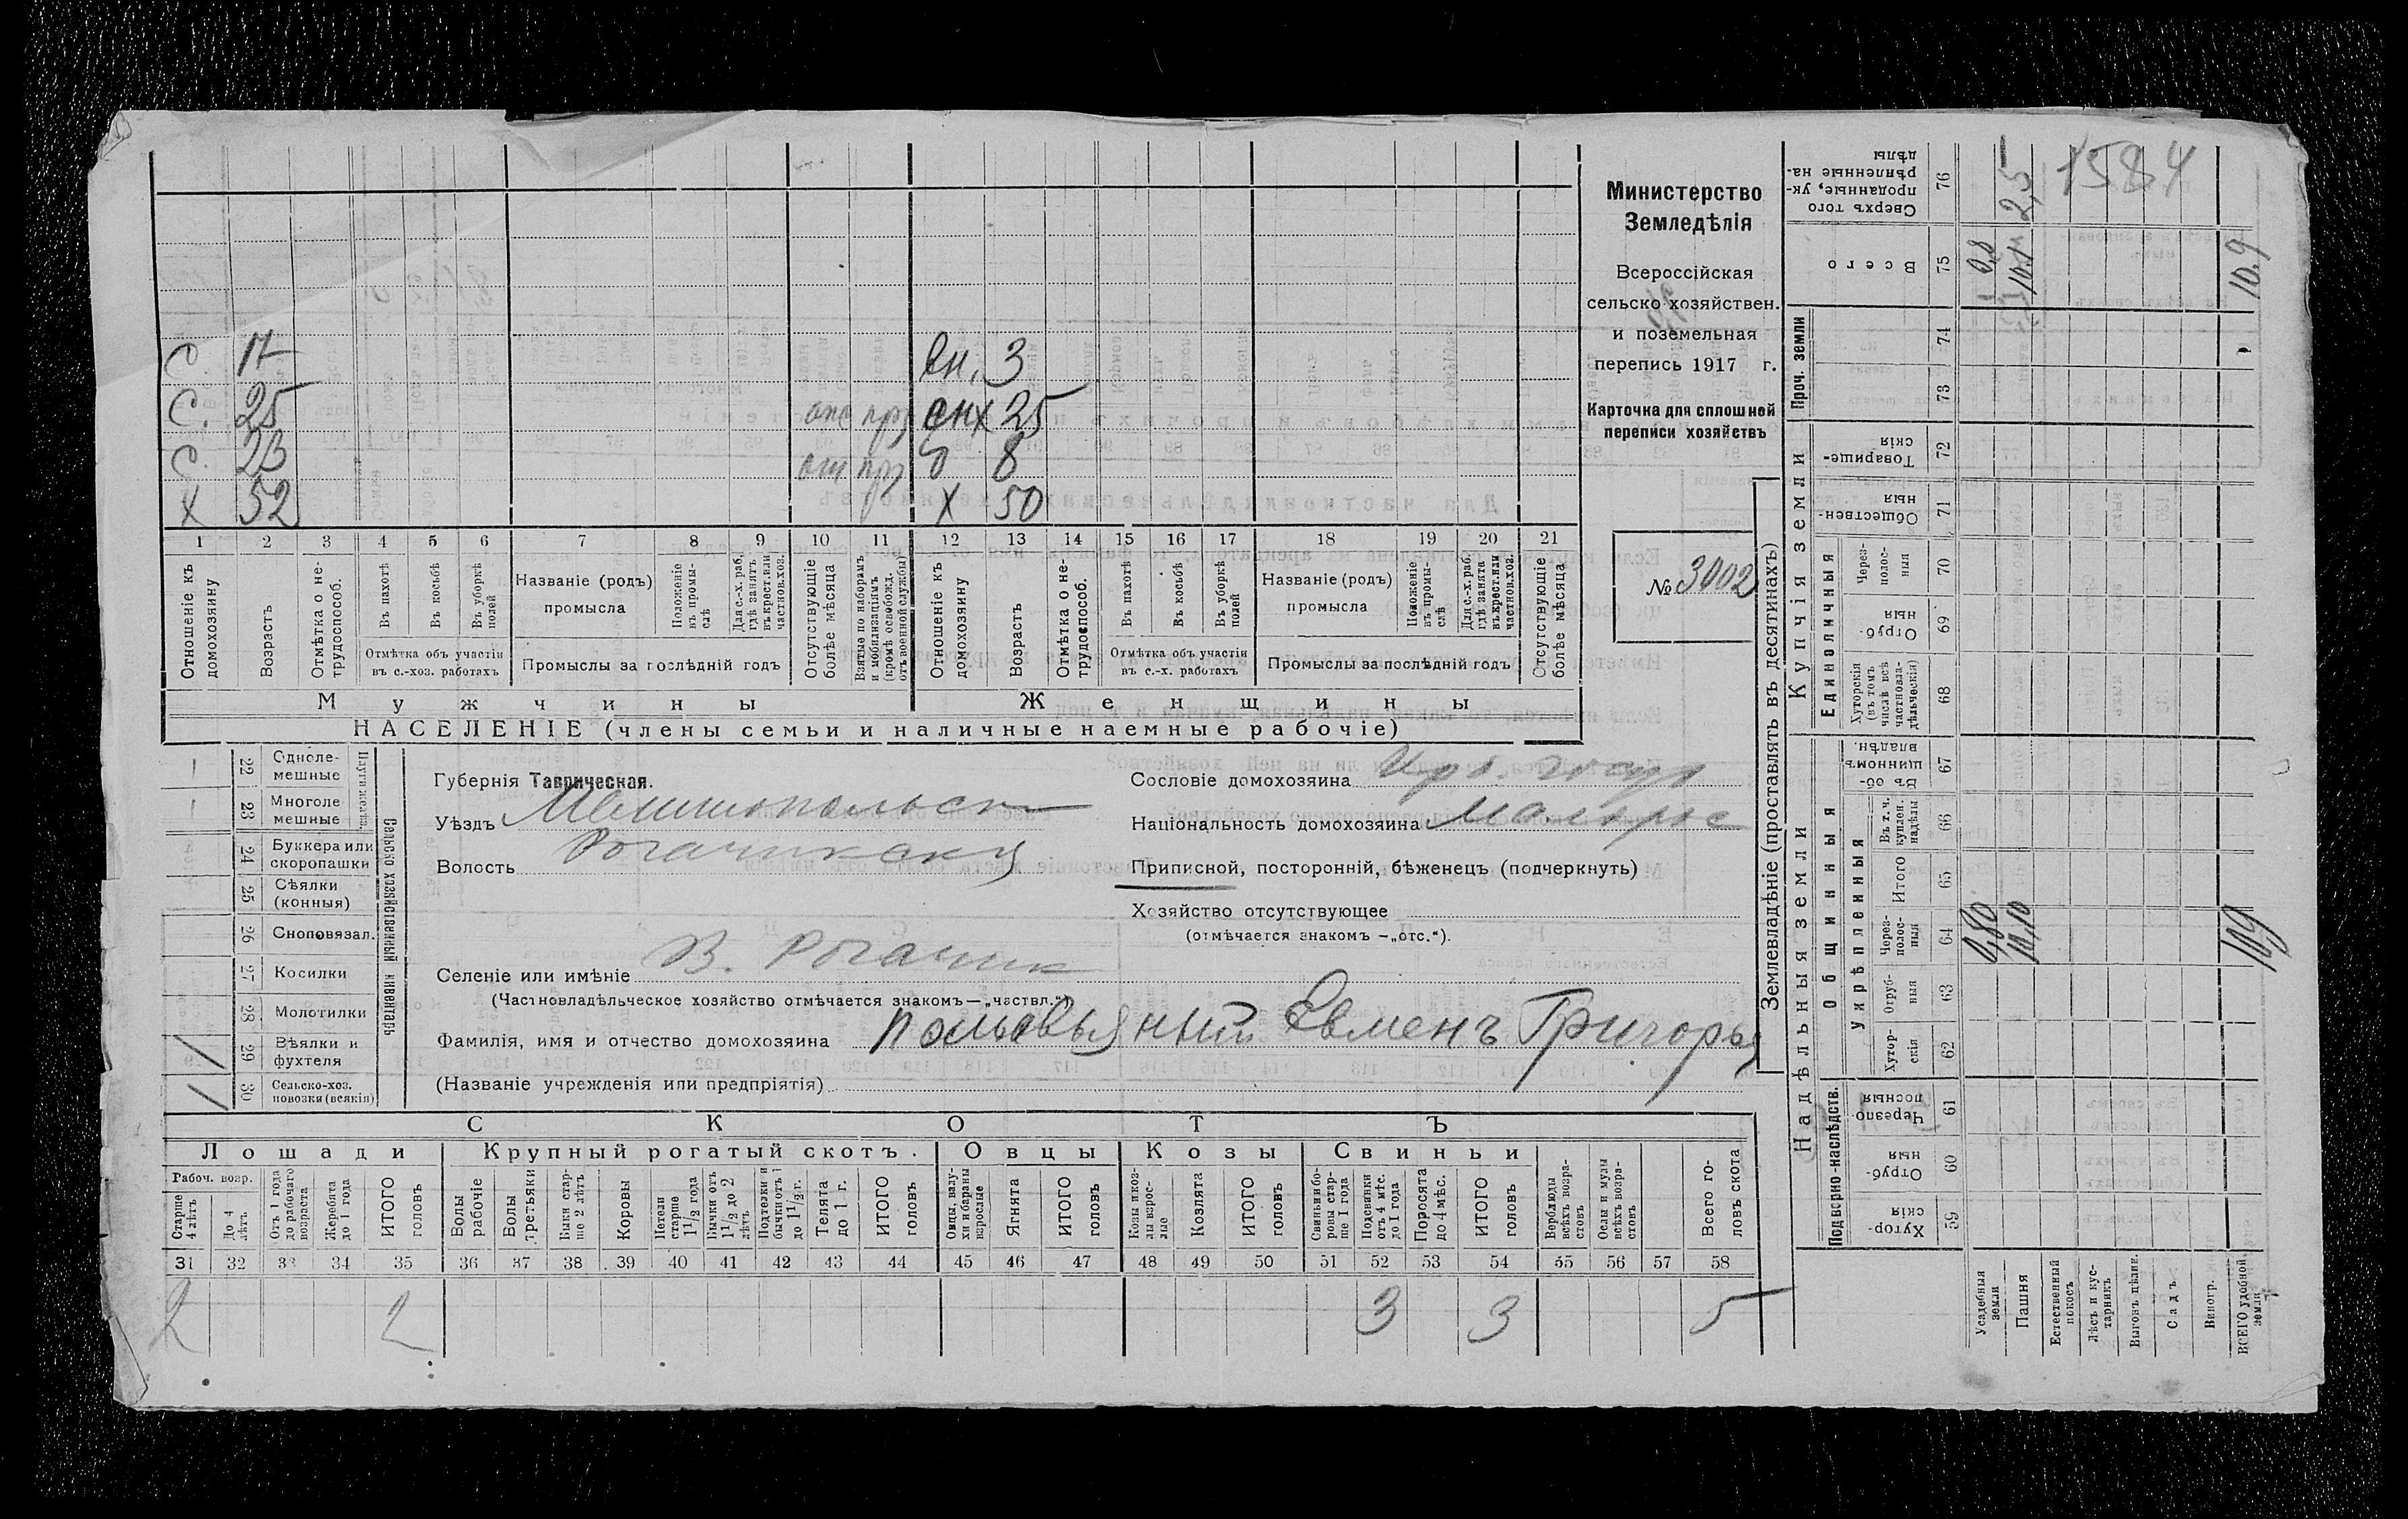 Министерство
Земледѣлія
Всероссійская
сельско хозяйствен.
и поземельная
перепись 1917 г.
Карточка для сплошной
переписи хозяйствъ
№ 3002
С. 17 вн. 3
С. 25 снх 25
С. 23 8
Х 52 Х 50
1 2 3 4 5 6 7 8 9 10 11 12 13 14 15 16 17 18 19 20 21
Отношеніе къ домохозяину
Возрастъ
Отмѣтка о не-трудоспособ.
Въ пахотѣ
Въ косьбѣ
Въ уборкѣ полей
Отмѣтка объ участіи
въ с.-хоз. работахъ
Названіе (родъ)
промысла
Положеніе въ промы-слѣ
Для с.-х. раб. гдѣ занятъ въ крест. или частнов. хоз.
Промыслы за послѣдній годъ
Отсутствующіе болѣе мѣсяца
Взятые по наборамъ и мобилизаціямъ (кромѣ освобожд. отъ военной службы)
Отношеніе къ домохозяину
Возрастъ
Отмѣтка о не-трудоспособ.
Въ пахотѣ
Въ косьбѣ
Въ уборкѣ полей
Отмѣтка объ участіи
въ с.-х. работахъ
Названіе (родъ)
промысла
Положеніе въ промы-слѣ
Для с.-х. раб. гдѣ занята въ крест. или частнов. хоз.
Промыслы за послѣдній годъ
Отсутствующіе болѣе мѣсяца
Мужчины Женщины
НАСЕЛЕНІЕ (члены семьи и наличные наемные рабочіе)
22 Одноле-мешные
23 Многоле мешные
24 Буккера или скоропашки
25 Сѣялки (конныя)
26 Сноповязал.
27 Косилки
28 Молотилки
1 29 Вѣялки и фухтеля
1 30 Сельско-хоз. повозки (всякія)
Сельско хозяйственный инвентарь
Губернія Таврическая.
Уѣздъ Мелитопольск
Волость Рогачикская
Селеніе или имѣніе В. Рогачик
(Частновладѣльческое хозяйство отмѣчается знакомъ—„частвл.“)
Сословіе домохозяина
Національность домохозяина Малорос
Приписной, посторонній, бѣженецъ (подчеркнуть)
Хозяйство отсутствующее
(отмѣчается знакомъ —„отс.“).
Фамилія, имя и отчество домохозяина Евменъ Григорья
(Названіе учрежденія или предпріятія)
СКОТЪ
Лошади Крупный рогатый скотъ. Овцы Козы Свиньи
Рабоч. возр.
Старше 4 лѣтъ
До 4 лѣтъ.
Отъ 1 года до рабочаго возраста
Жеребята до 1 года
ИТОГО головъ
Волы рабочіе
Волы третьяки
Быки стар-ше 2 лѣтъ
Коровы
Нетели старше 1½ года
Бычки отъ 1½ до 2 лѣтъ
Подтелки и бычки отъ 1 до 1½ г.
Телята до 1 г.
ИТОГО головъ
Овцы, валу-хи и бараны взрослые
Ягнята
ИТОГО головъ
Козы и коз-лы взрос-лые
Козлята
ИТОГО головъ
Свиньи и бо-ровы стар-ше 1 года
Подсвинки отъ 4 мѣс. до 1 года
Поросята до 4 мѣс.
ИТОГО головъ
Верблюды всѣхъ возра-стовъ
Ослы и мулы всѣхъ возра-стовъ
Всего го-ловъ скота
31 32 33 34 35 36 37 38 39 40 41 42 43 44 45 46 47 48 49 50 51 52 53 54 55 56 57 58
2 2 3 3 5
Землевладѣніе (проставлять въ десятинахъ)
Надѣльныя земли
Купчія земли
Проч. земли
Подворно-наслѣдств.
Общинныя
Укрѣпленныя
Единоличныя
Сверхъ того проданные, ук-рѣпленные на-дѣлы 76 2,5 1584
Всего 75 0,8 10.1 10.9
74
73
Товарище-скія 72
Обществен-ныя 71
Через-полос-ныя 70
Отруб-ныя 69
Хуторскія (въ томъ числѣ всѣ частновла-дѣльческія) 68
Въ об-щинномъ владѣн. 67
Въ т. ч. куплен. надѣлы 66
Итого 65
Через-полос-ныя 64 0,80 10,10 10,9
Отруб-ныя 63
Хутор-скія 62
Черезпо-лосныя 61
Отруб-ныя 60
Хутор-скія 59
Усадебныя земли
Пашня
Естественный покосъ
Лѣсъ и кус-тарникъ
Выгонъ цѣлин.
Садъ
Виногр.
ВСЕГО удобной земли